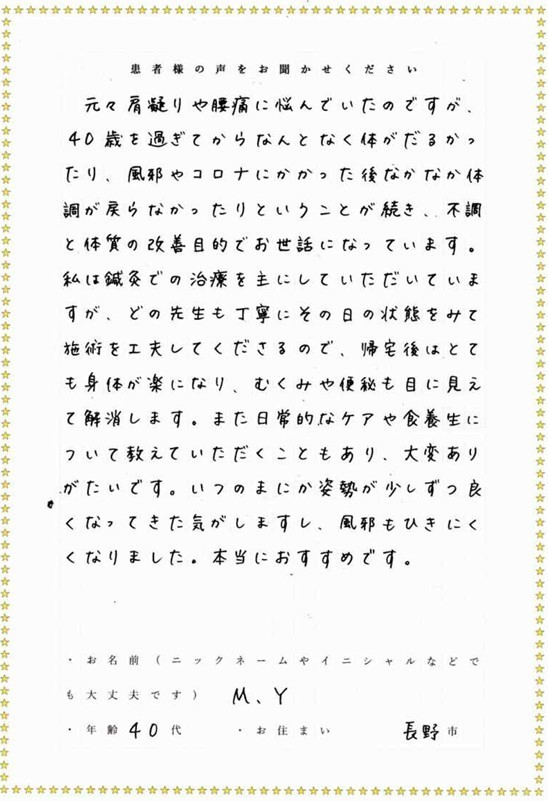 患者様の声をお聞かせください
元々肩凝りや腰痛に悩んでいたのですが、
40歳を過ぎてからなんとなく体がだるかっ
たり、風邪やコロナにかかった後なかなか体
調が戻らなかったりということが続き、不調
と体質の改善目的でお世話になっています。
私は鍼灸での治療を主にしていただいていま
すが、どの先生も丁寧にその日の状態をみて
施術を工夫してくださるので、帰宅後はとて
も身体が楽になり、むくみや便秘も目に見え
て解消します。また日常的なケアや食養生に
ついて教えていただくこともあり、大変あり
がたいです。いつのまにか姿勢が少しずつ良
くなってきた気がしますし、風邪もひきにく
くなりました。本当におすすめです。
・お名前(ニックネームやイニシャルなどで
も大丈夫です) M、Y
・年齢 40代 ・お住まい 長野市